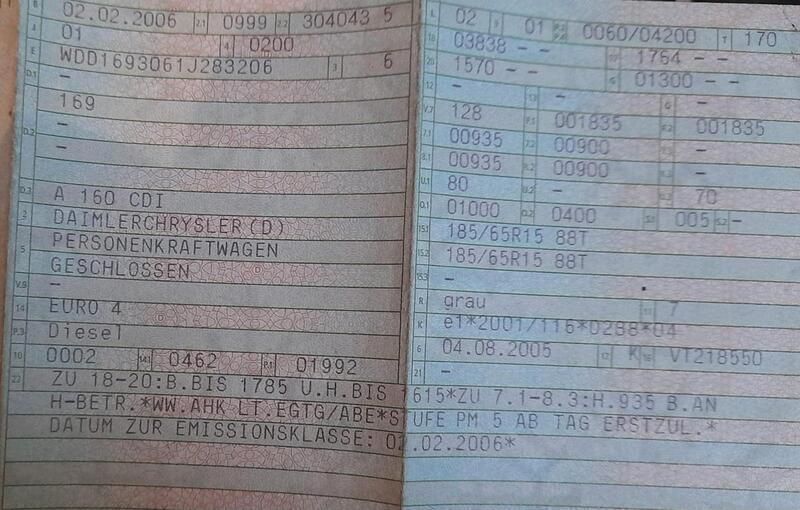 B 02.02.2006 2.1 0999 2.2 304043 5
J 01 4 0200
E WDD1693061J283206 3 6
D.1 –
169
D.2 –
–
D.3 A 160 CDI
2 DAIMLERCHRYSLER(D)
5 PERSONENKRAFTWAGEN
GESCHLOSSEN
V.9 –
14 EURO 4
P.3 Diesel
10 0002 14.1 0462 P.1 01992
L 02 9 01 0060/04200 T 170
18 03838 – – 1764 – –
20 1570 – – G 01300 – –
12 – 13 – Q –
V.7 128 F.1 001835 F.2 001835
7.1 00935 7.2 00900 7.3 –
8.1 00935 8.2 00900 8.3 –
U.1 80 U.2 – U.3 70
O.1 01000 O.2 0400 S.1 005 S.2 –
15.1 185/65R15 88T
15.2 185/65R15 88T
15.3 –
R grau 11 7
K e1*2001/116*0288*04
6 04.08.2005 17 K 16 VT218550
21 –
22 ZU 18-20:B.BIS 1785 U.H.BIS 1615*ZU 7.1-8.3:H.935 B.AN
H-BETR.*WW.AHK LT.EGTG/ABE*STUFE PM 5 AB TAG ERSTZUL.*
DATUM ZUR EMISSIONSKLASSE: 02.02.2006*